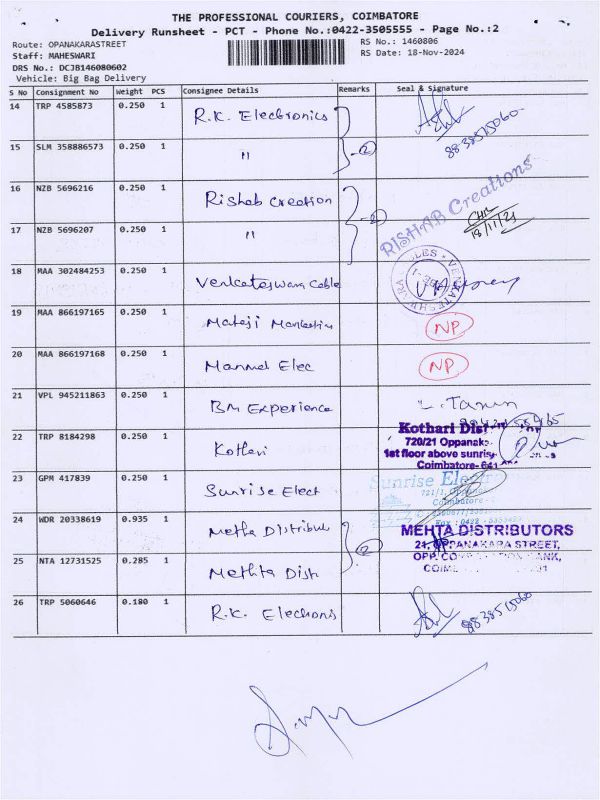 THE PROFESSIONAL COURIERS, COIMBATORE
Delivery Runsheet - PCT - Phone No.:0422-3505555 - Page No.:2
Route: OPANAKARASTREET
RS No.: 1460806
Staff: MAHESWARI
RS Date: 18-Nov-2024
DRS No.: DCJB146080602
Vehicle: Big Bag Delivery
S No Consignment No Weight PCS Consignee Details Remarks Seal & Signature
14 TRP 4585873 0.250 1 R.K. Electronics
8838515060
15 SLM 358886573 0.250 1 " 2
16 NZB 5696216 0.250 1 Rishab Creation
RISHAB Creations
17 NZB 5696207 0.250 1 "
18 MAA 302484253 0.250 1 Venkateswara Cable
19 MAA 866197165 0.250 1 Mataji Marketin NP
20 MAA 866197168 0.250 1 Manmel Elec NP
21 VPL 945211863 0.250 1 BM Experience
22 TRP 8184298 0.250 1 Kothari
Kothari Dist
720/21 Oppanak
1st floor above sunris
Coimbatore- 641
23 GPM 417839 0.250 1 Sunrise Elect
Sunrise Elect
Coimbatore
24 WDR 20338619 0.935 1 Metha Distribut 2
MEHTA DISTRIBUTORS
21, OPPANAKARA STREET,
25 NTA 12731525 0.285 1 Methta Dist
26 TRP 5060646 0.180 1 R.K. Elechonis
8838515060